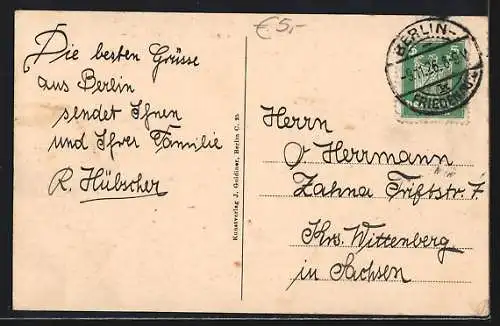 €5,-
Die besten Grüsse
aus Berlin
sendet Ihnen
und Ihrer Familie
R. Hübscher
Kunstverlag J. Goldiner, Berlin C. 25
BERLIN-
-9.11.26.
FRIEDENAU
Herrn
O Herrmann
Zahna Triftstr. 7
Krs. Wittenberg
in Sachsen